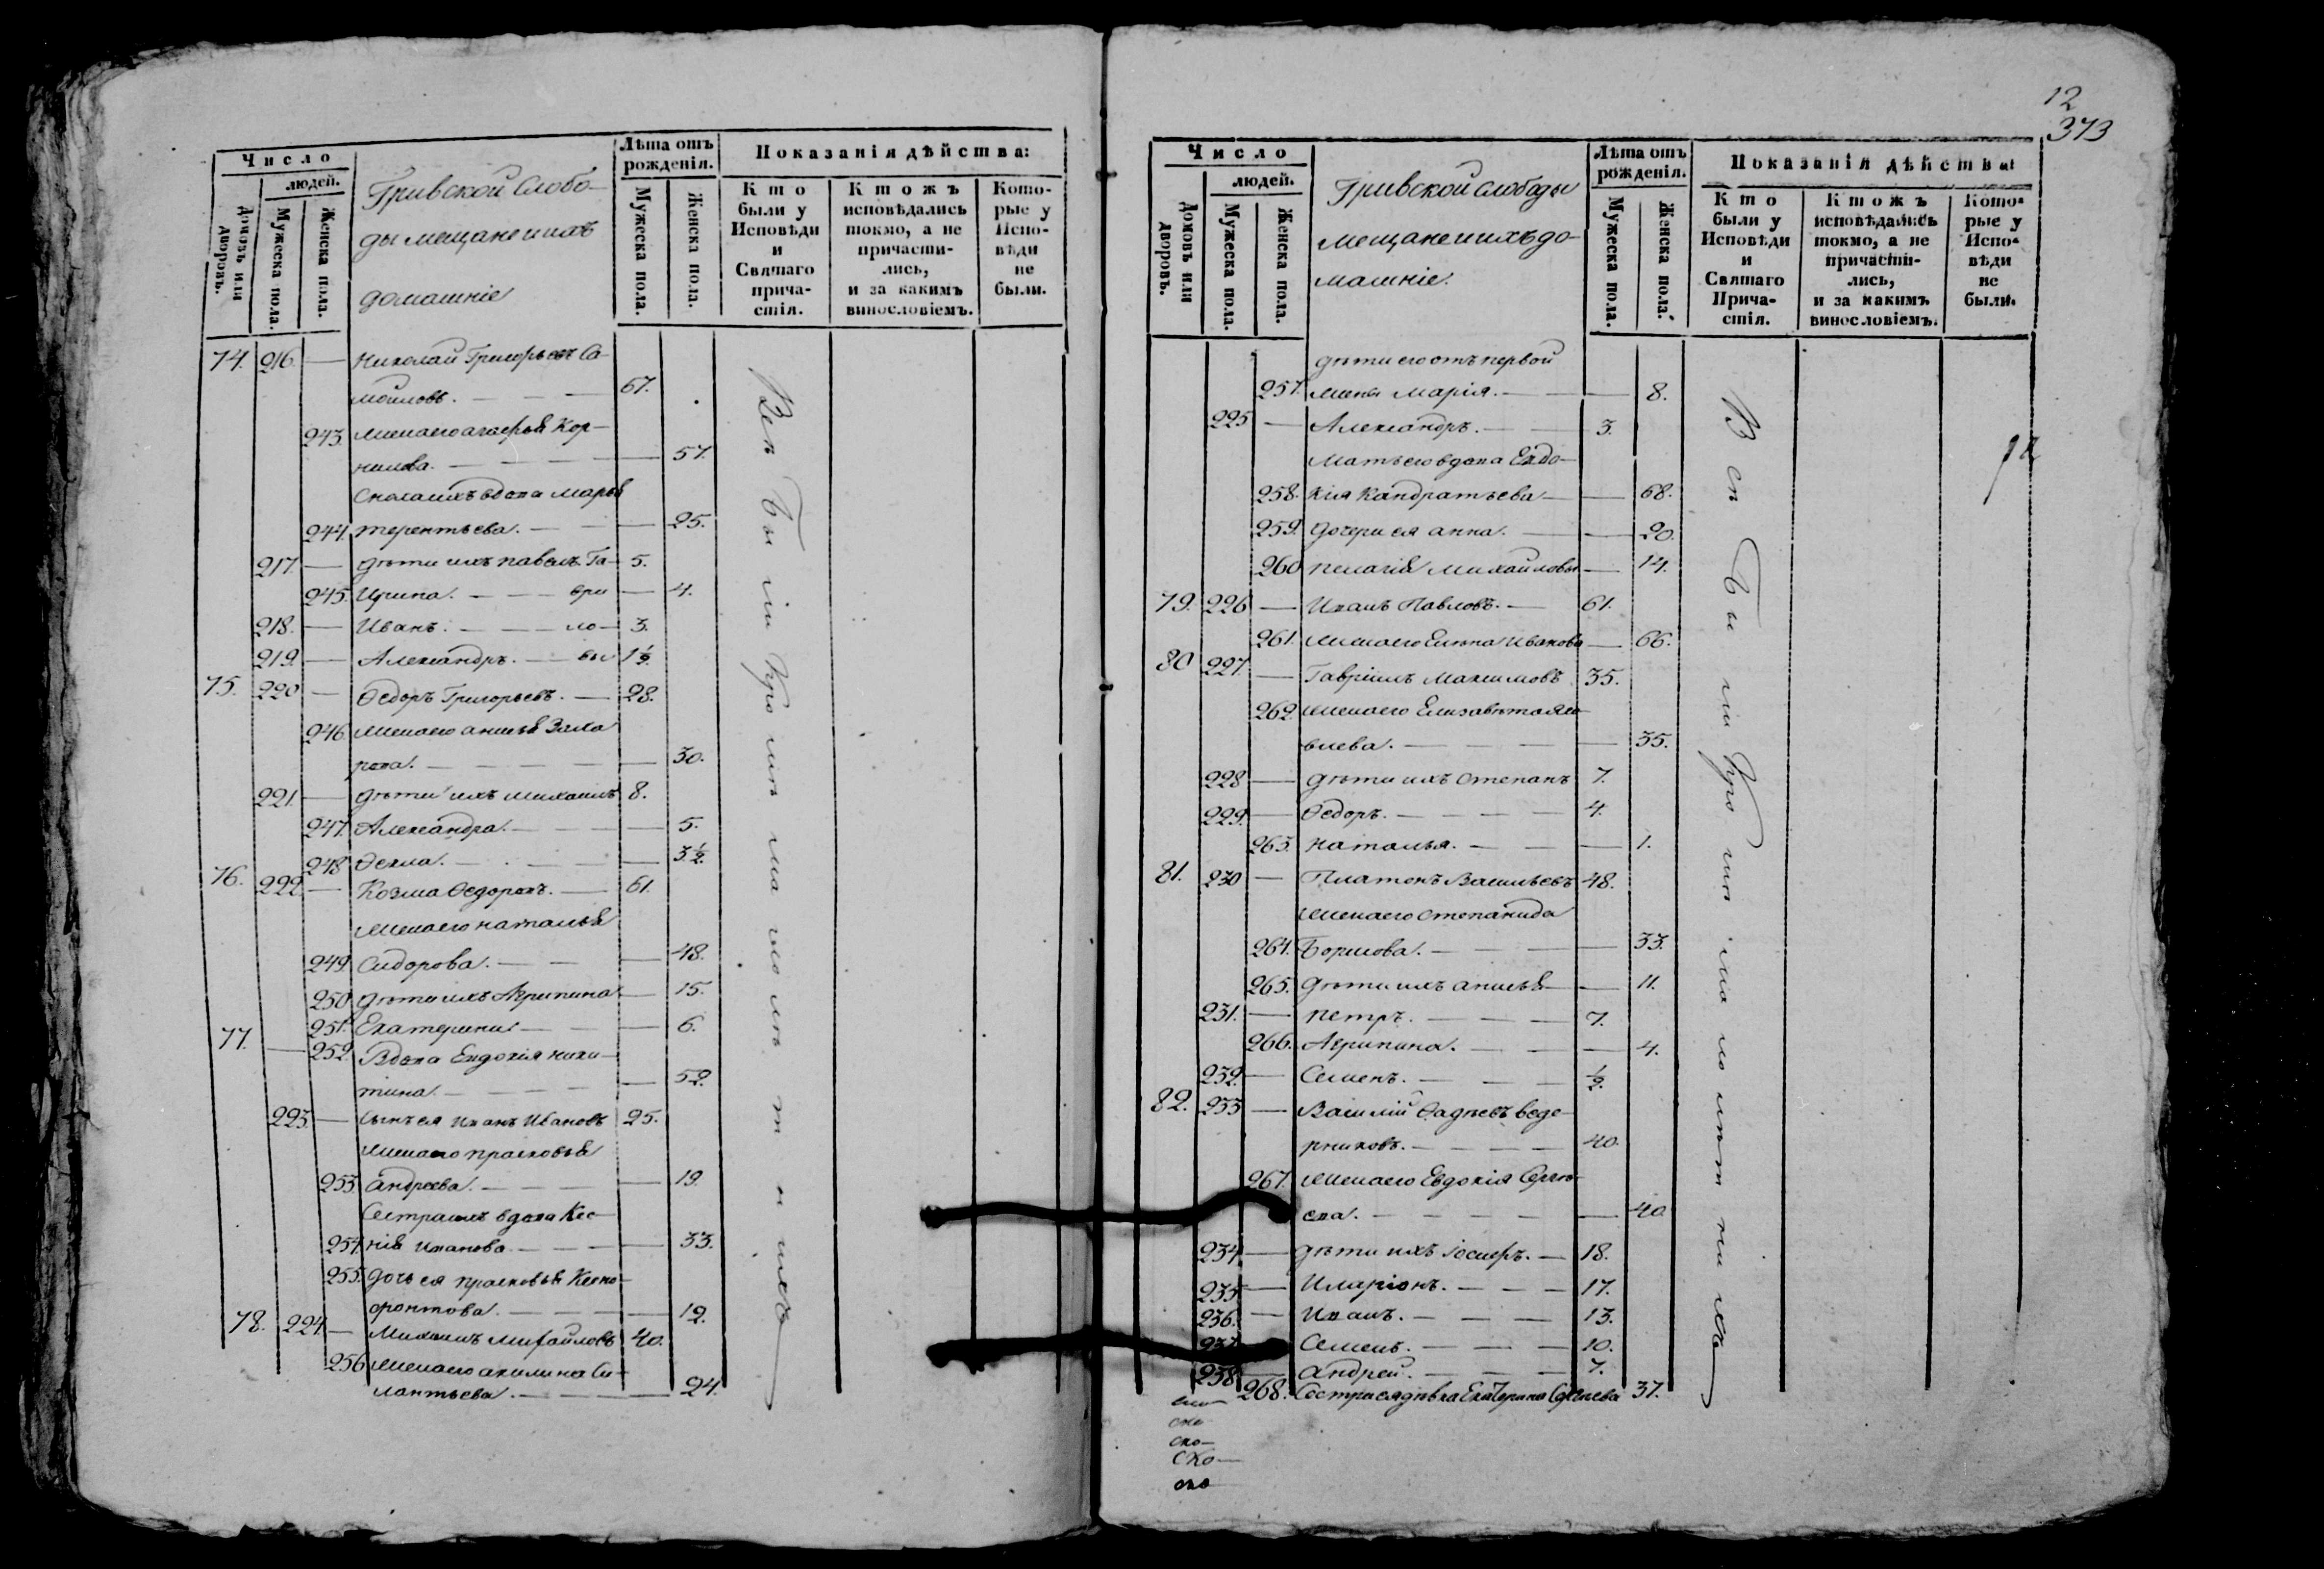 Число
людей.
Домовъ или дворовъ.
Мужеска пола.
Женска пола.
Гривской Слобо-
ды мещане и ихъ
домашніе
Лѣта отъ рожденія.
Мужеска пола.
Женска пола.
Показанія дѣйства:
Кто были у Исповѣди и Святаго причастія.
Ктожъ исповѣдались токмо, а не причастились, и за какимъ винословіемъ.
Которые у Исповѣди не были.
74. 216. — Николай Григорьевъ Са-
мойловъ. — 67.
243. жена его агафья Кор-
нилова. — 57.
Сноха ихъ вдова марья
244. терентьева. — 25.
217. — дѣти ихъ павелъ Га- 5.
245. Ирина. — ври — 4.
218. — Иванъ. — ло — 3.
219. — Александръ. — вы 1½.
75. 220 — Ѳедоръ Григорьевъ. — 28.
246. жена его анисья Заха
рова. — 30.
221. — дѣти ихъ михаилъ 8.
247. Александра. — 5.
248 Ѳекла. — 3½.
76. 222. — Козма Ѳедоровъ. — 61.
жена его наталья
249. Сидорова. — 48.
250 дѣти ихъ Агрипина — 15.
251. Екатерина — 6.
77. — 252. Вдова Евдокія ники-
тина. — 52.
223. — сынъ ея иванъ Ивановъ 25.
жена его прасковья
253. андреева. — 19.
Сестра ихъ вдова Ксе-
254. нія иванова. — 33.
255. дочь ея прасковья Ксено-
фонтова. — 12.
78. 224. — Михаилъ михайловъ 40.
256 жена его акилина Си-
лантьева. — 24.
Всѣ были кромѣ малолѣтнихъ
12
373
Число
людей.
Домовъ или дворовъ.
Мужеска пола.
Женска пола.
Гривской слободы
мещане и ихъ до-
машніе.
Лѣта отъ рожденія.
Мужеска пола.
Женска пола.
Показанія дѣйства:
Кто были у Исповѣди и Святаго Причастія.
Ктожъ исповѣдались токмо, а не причастились, и за какимъ винословіемъ.
Которые у Исповѣди не были.
дѣти его отъ первой
257. жены Марія. — 8.
225 — Александръ. — 3.
Мать его вдова Евдо-
258. кія Кандратьева — 68.
259. дочери ея анна. — 20.
260 пелагія михайловы — 14.
79. 226 — Иванъ Павловъ. — 61.
261. жена его Елена иванова — 66.
80 227. — Гавріилъ Максимовъ 35.
262. жена его Елизавета Яко
влева. — 35.
228 — дѣти ихъ степанъ 7.
229. — Ѳедоръ. — 4.
263. наталья. — 1.
81. 230 — Платонъ Васильевъ 48.
жена его степанида
264. Борисова. — 33.
265. дѣти ихъ анисья — 11.
231. — петръ. — 7.
266. Агрипина. — 4.
232. — Семенъ. — ½.
82. 233 — Василій Ѳадѣевъ веде-
рниковъ. — 40.
267. жена его Евдокія Сергѣ-
ева. — 40.
234. — дѣти ихъ Іосифъ. — 18.
235 — Иларіонъ. — 17.
236. — Иванъ. — 13.
237 — Семенъ. — 10.
238 — андрей. — 7.
268. Сестра ея дѣвка Екатерина Сергеева 37.
Всѣ были кромѣ малолѣтнихъ
ско-
ско-
ско